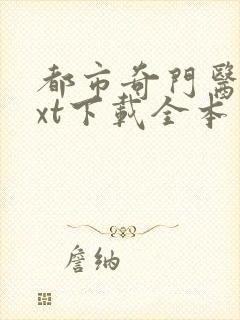 都市奇門醫
xt下載全本
詹納